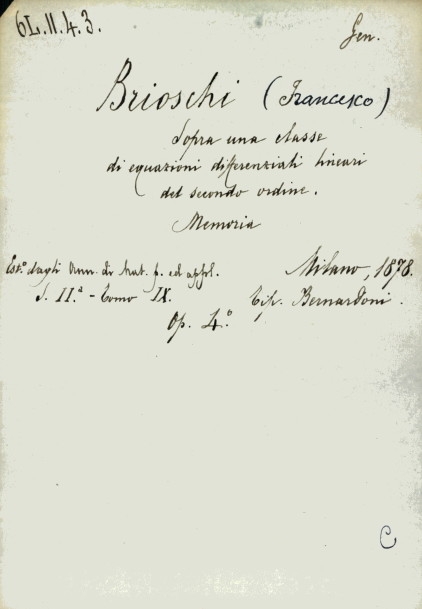 6L.11.4.3.
Gen.
Brioschi (Francesco)
Sopra una classe
di equazioni differenziali lineari
del secondo ordine.
Memoria
Est.º dagli Ann. di Mat. p. ed appl.
S. II.ª - Tomo IX.
Milano, 1878.
Tip. Bernardoni.
Op. 4.º
C